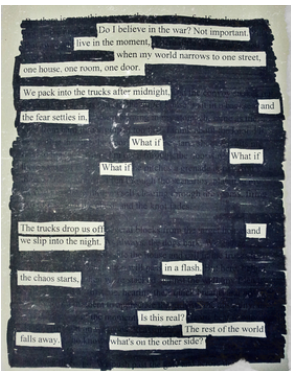 Do I believe in the war? Not important.
live in the moment,
when my world narrows to one street,
one house, one room, one door.
We pack into the trucks after midnight,
and
the fear settles in.
What if
What if
What if
The trucks drop us off
and
we slip into the night.
in a flash.
the chaos starts,
Is this real?
The rest of the world
falls away.
what's on the other side?